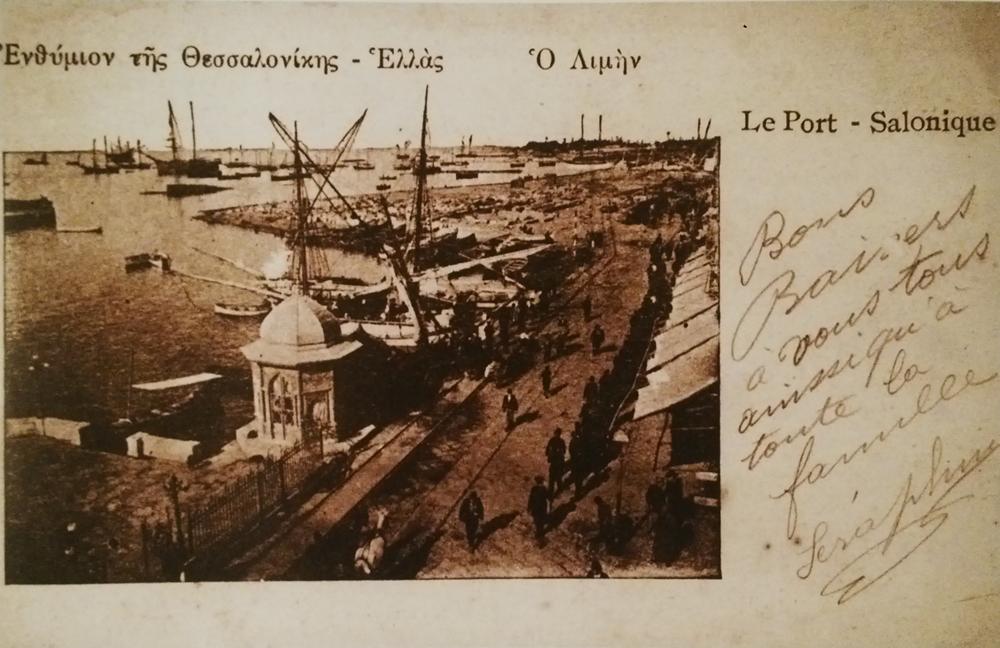 Ἐνθύμιον τῆς Θεσσαλονίκης - Ἑλλὰς
Ὁ Λιμὴν
Le Port - Salonique
Bons
Baisers
à vous tous
ainssi qu'à
toute la
famille
Séraphin